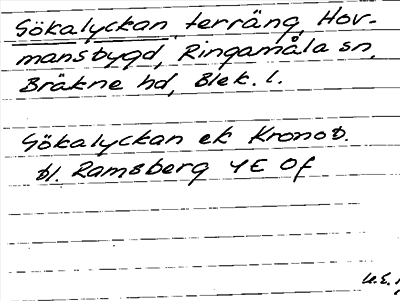 Sökalyckan, terräng, Hov-
mansbygd, Ringamåla sn,
Bräkne hd, Blek. l.
Sökalyckan ek Kronob.
bl. Ramsberg 4E 0f